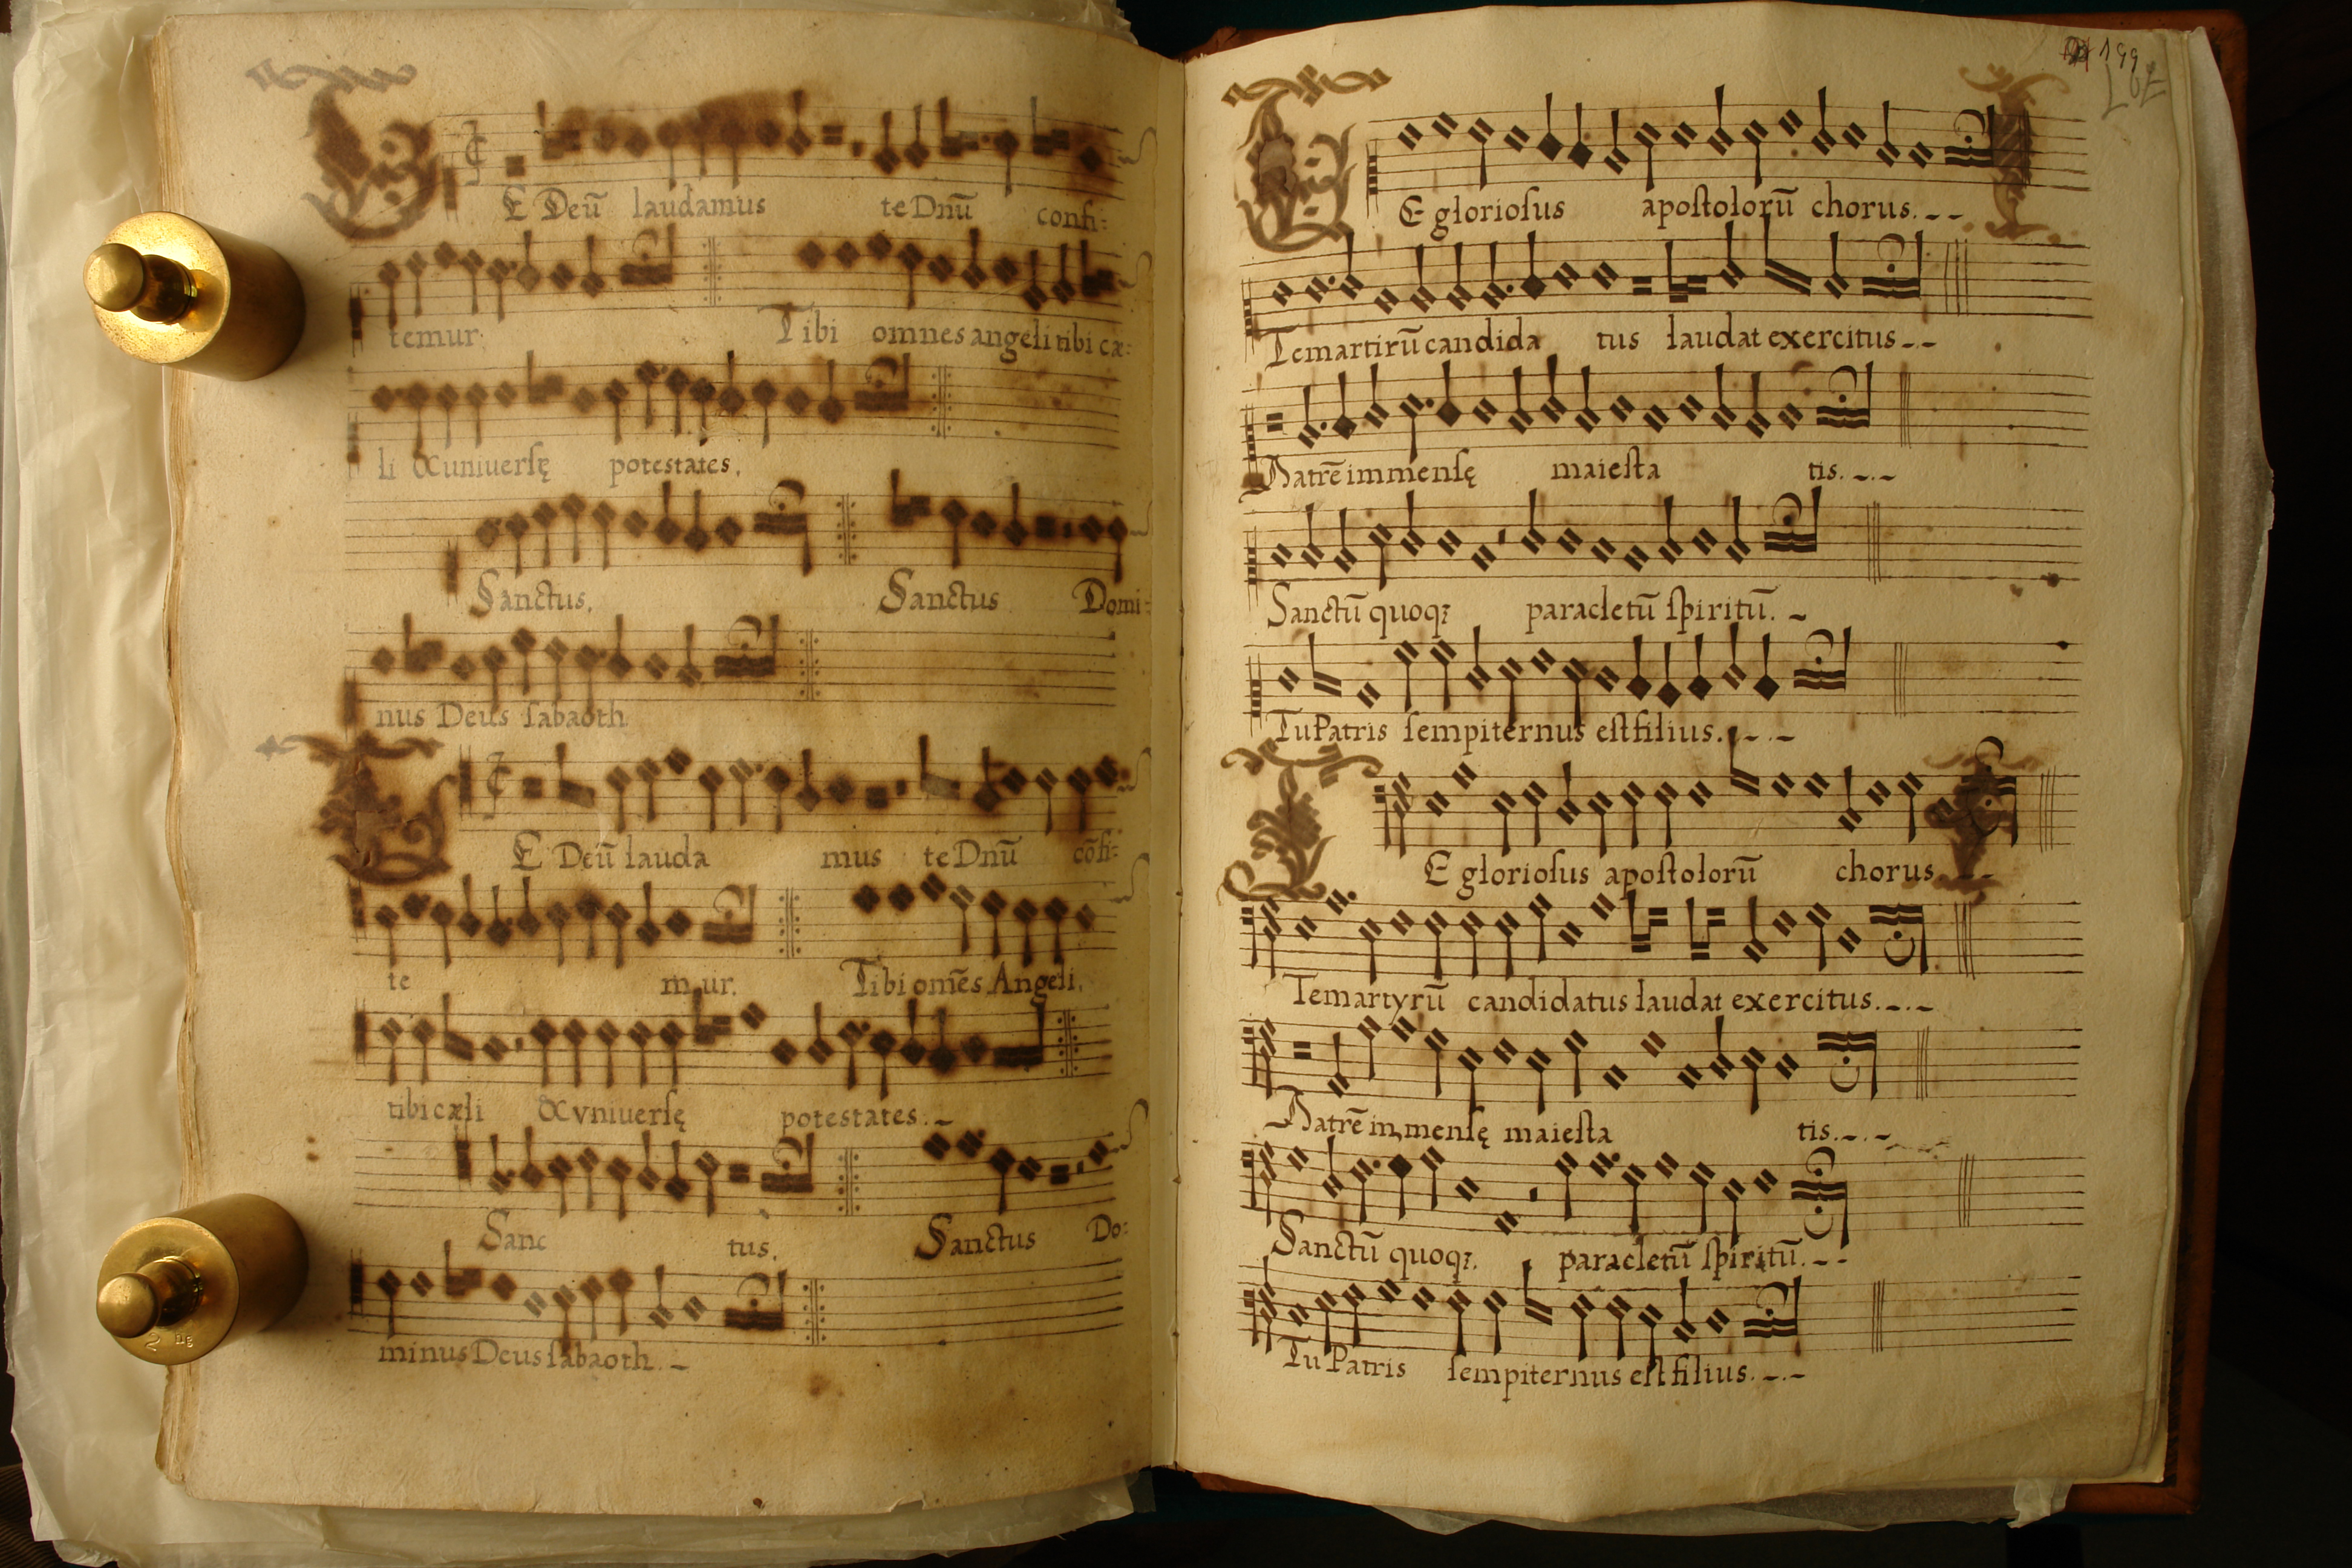 TE Deū laudamus te Dnū confi:
temur: Tibi omnes angeli tibi cæ:
li & uniuersę potestates.
Sanctus. Sanctus Domi:
nus Deus ſabaoth
TE Deū lauda mus te Dnū cōfi:
te mur. Tibi omēs Angeli.
tibi cæli & vniuerſę potestates. –
Sanc tus. Sanctus Do:
minus Deus ſabaoth. –
199
TE glorioſus apoſtolorū chorus. – –
Te martirū candida tus laudat exercitus – –
Patrē immenſę maieſta tis. – . –
Sanctū quoqꝫ paracletū ſpiritū. –
Tu Patris ſempiternus eſt filius. – . –
TE glorioſus apoſtolorū chorus
Te martyrū candidatus laudat exercitus. – . –
Patrē immenſę maieſta tis. – . –
Sanctū quoqꝫ. paracletū ſpiritū. – –
Tu Patris ſempiternus eſt filius. – . –